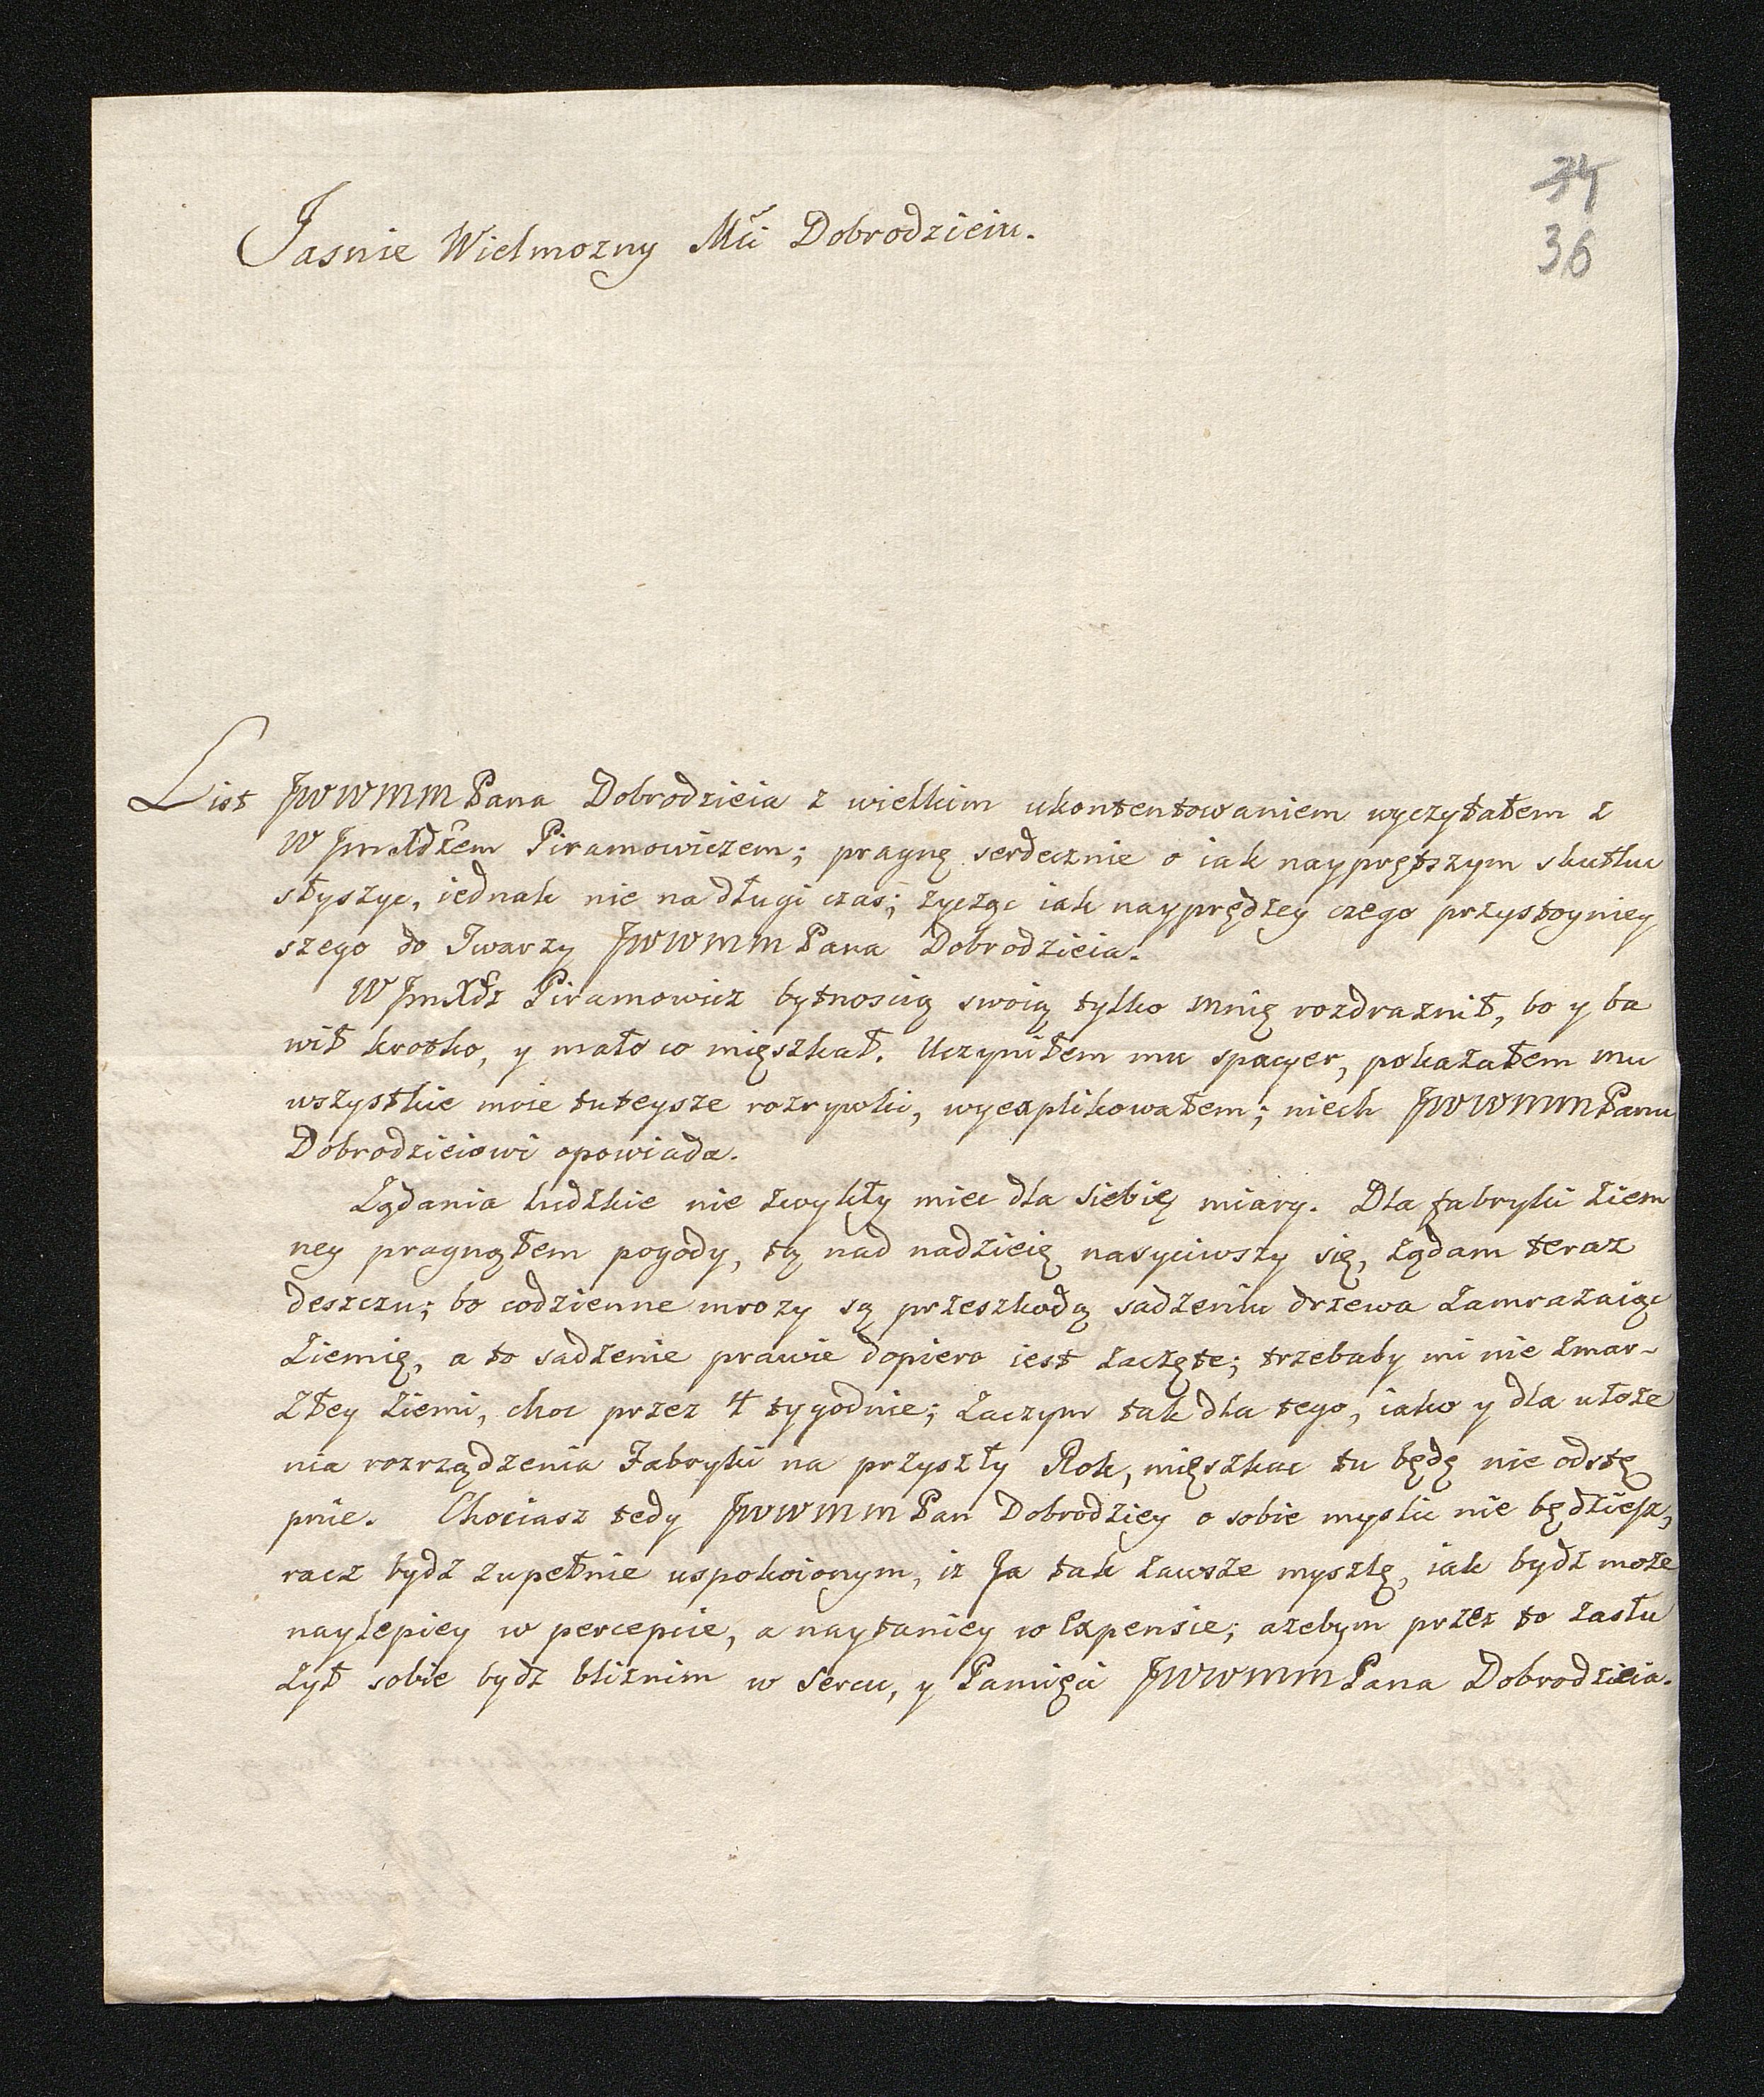 34
36
Jasnie Wielmozny Mći Dobrodzieiu.
List JWWMMPana Dobrodzieia z wielkim ukontentowaniem wyczytałem z
WJmXdzem Piramowiczem; pragnę serdecznie o iak nayprętszym skutku
słyszyc, iednak nie na długi czas; zycząc iak nayprędzey czego przystoyniey
szego do Twarzy JWWMMPana Dobrodzieia.
WJmXdz Piramowicz bytnoscią swoią tylko mnię rozdraznił, bo y ba
wił krotko, y mało co mięszkał. Uczyniłem mu spacyer, pokazałem mu
wszystkie moie tuteysze rozrywki, wyexplikowałem; niech JWWMMPanu
Dobrodzieiowi opowiada.
Ządania ludzkie nie zwykły miec dla siebię miary. Dla fabryki ziem
ney pragnąłem pogody, tą nad nadzieię nasyciwszy się, ządam teraz
deszczu; bo codzienne mrozy są przeszkodą sadzeniu drzewa zamrazaiąc
ziemię, a to sadzenie prawie dopiero iest zaczęte; trzebaby mi nie zmar-
złey ziemi, choc przez 4 tygodnie; zaczym tak dla tego, iako y dla ułoze
nia rozrządzenia Fabryki na przyszły Rok, mięszkac tu będę nie odstę
pnie. Chociasz tedy JWWMMPan Dobrodziey o sobie myslic nie będziesz,
racz bydz zupełnie uspokoionym, iz Ja tak zawsze myszlę, iak bydz moze
naylepiey w percepcie, a naytaniey w Expensie; azebym przez to zasłu
zył sobie bydz bliznim w Sercu, y Pamięci JWWMMPana Dobrodzieia.